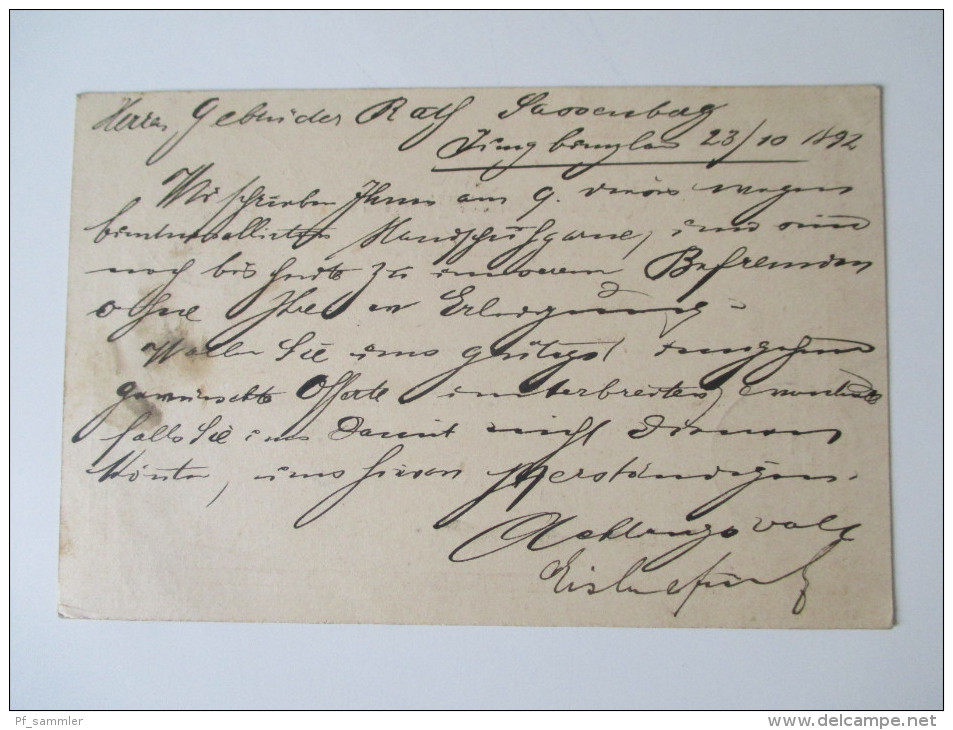 Herren Gebrüder Rath Sassenberg
Jungbunzlau 23/10 1892
Wir schrieben Ihnen am 9. dieses wegen
Handschuhgarne, und sind
noch bis heute zu unserem Befremden
ohne Ihre Erledigung.
Wollen Sie uns gütigst umgehend
gewünschte Offerte unterbreiten,
falls Sie uns Damit nicht Dienen
könten, uns hievon Verständigen.
Achtungsvoll
Pf_sammler
www.delcampe.net